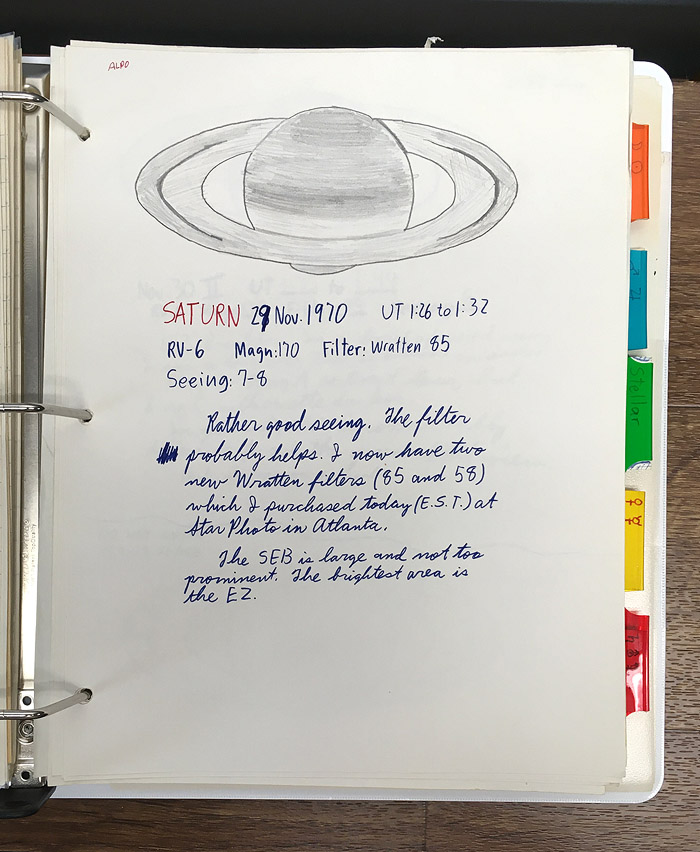 ALPO
SATURN 29 Nov. 1970 UT 1:26 to 1:32
RV-6 Magn: 170 Filter: Wratten 85
Seeing: 7-8
Rather good seeing. The filter
probably helps. I now have two
new Wratten filters (85 and 58)
which I purchased today (E.S.T.) at
Star Photo in Atlanta.
The SEB is large and not too
prominent. The brightest area is
the EZ.
Stellar